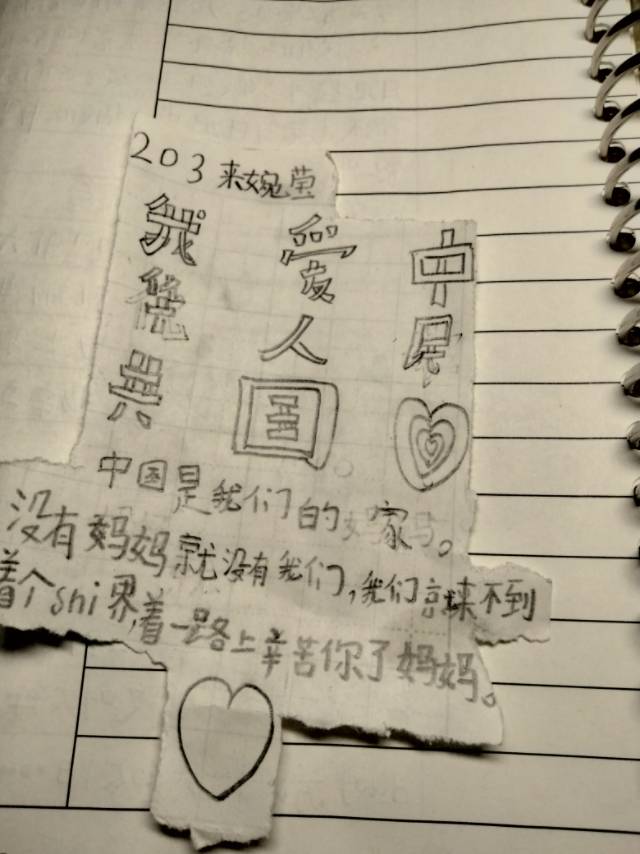 203 来婉莹
我 爱 中
人 民
共 国
中国是我们的家。
没有妈妈就没有我们,我们来不到
着个shi界,着一路上辛苦你了妈妈。